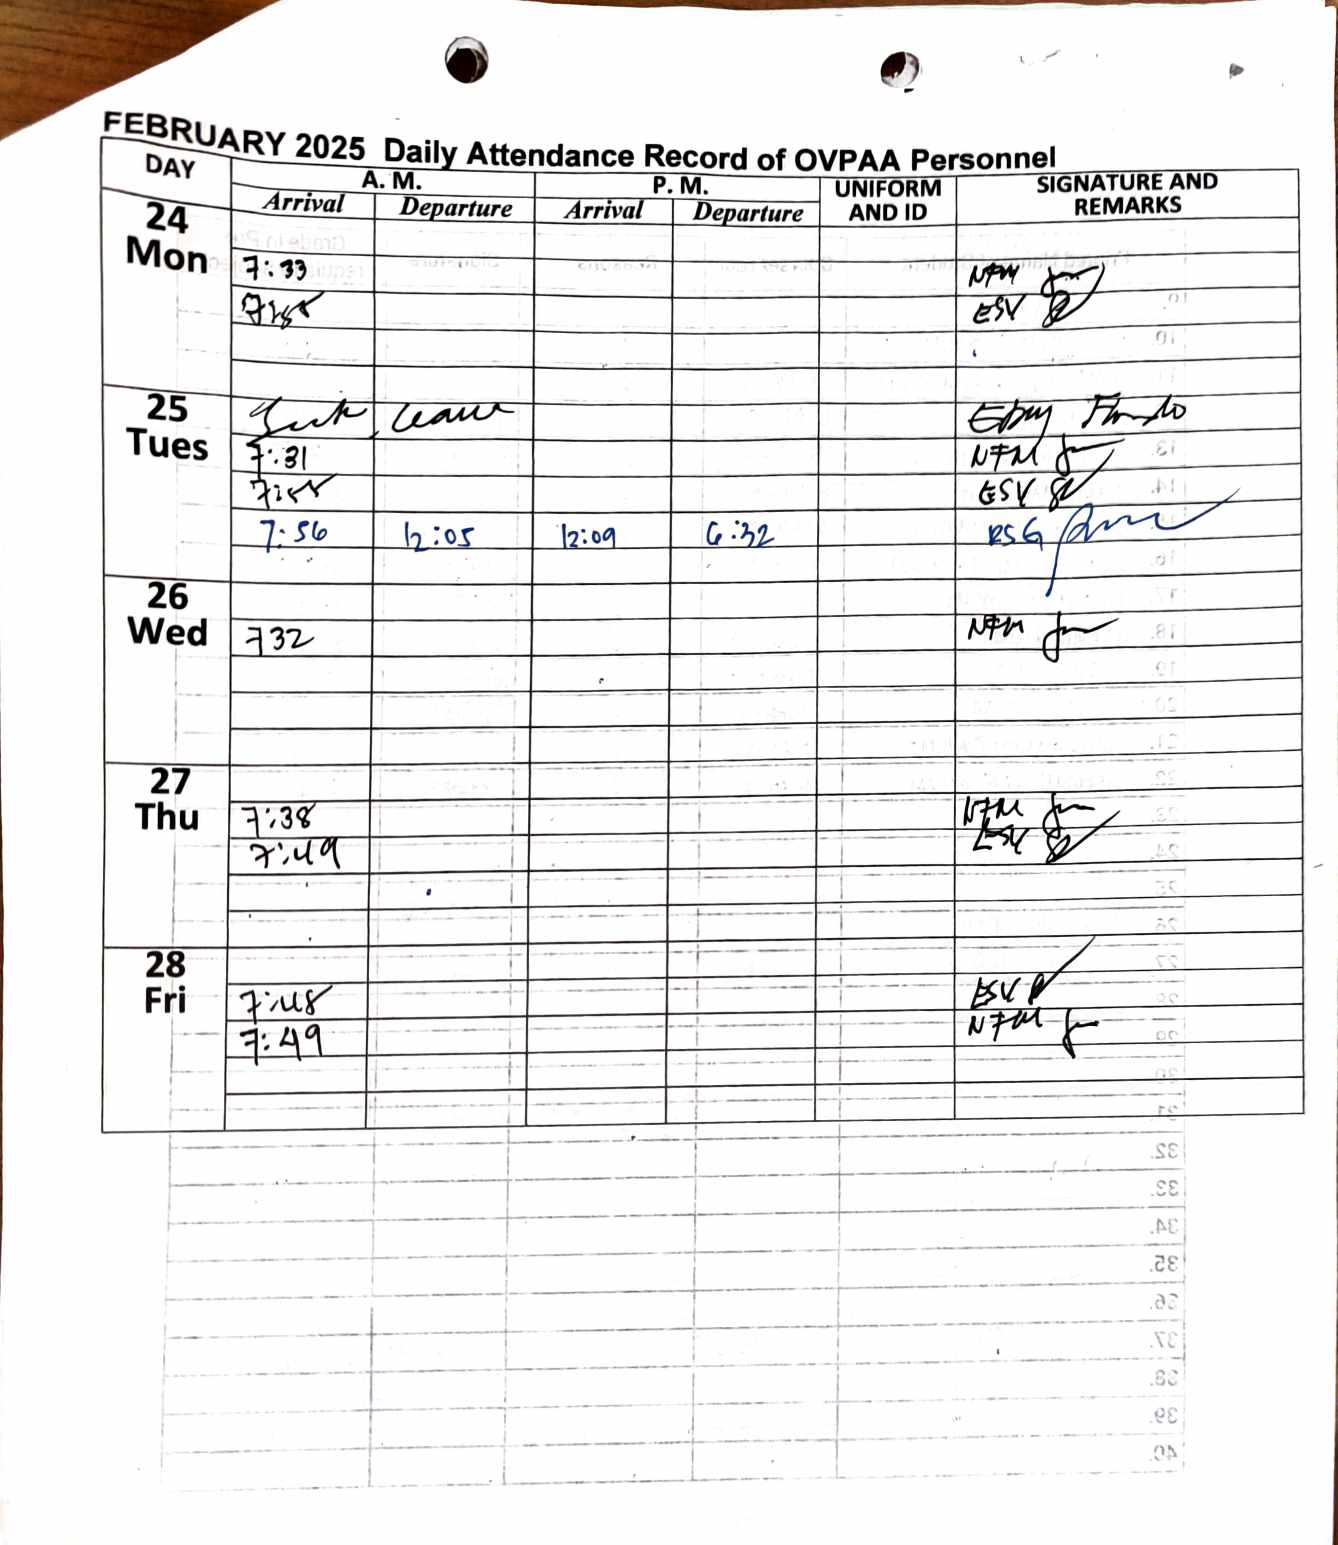 FEBRUARY 2025 Daily Attendance Record of OVPAA Personnel
DAY A. M. P. M. UNIFORM AND ID SIGNATURE AND REMARKS
Arrival Departure Arrival Departure
24 Mon
7:33 NFM
ESV
25 Tues
Sick Leave
7:31 NFM
7:55 ESV
7:56 12:05 12:09 6:32 RSG
26 Wed
732 NFM
27 Thu
7:38 NFM
7:49 ESV
28 Fri
7:48 ESV
7:49 NFM
32.
33.
34.
35.
36.
37.
38.
39.
40.